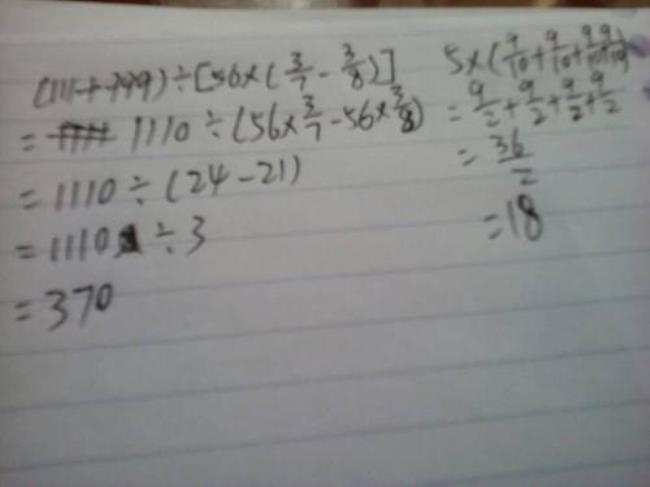 (111+999)÷[56×(3/7-3/8)]
= 1110÷(56×3/7-56×3/8)
=1110÷(24-21)
=1110÷3
=370
5×(9/10+9/10+9/10+9/10)
=9/2+9/2+9/2+9/2
=36/2
=18